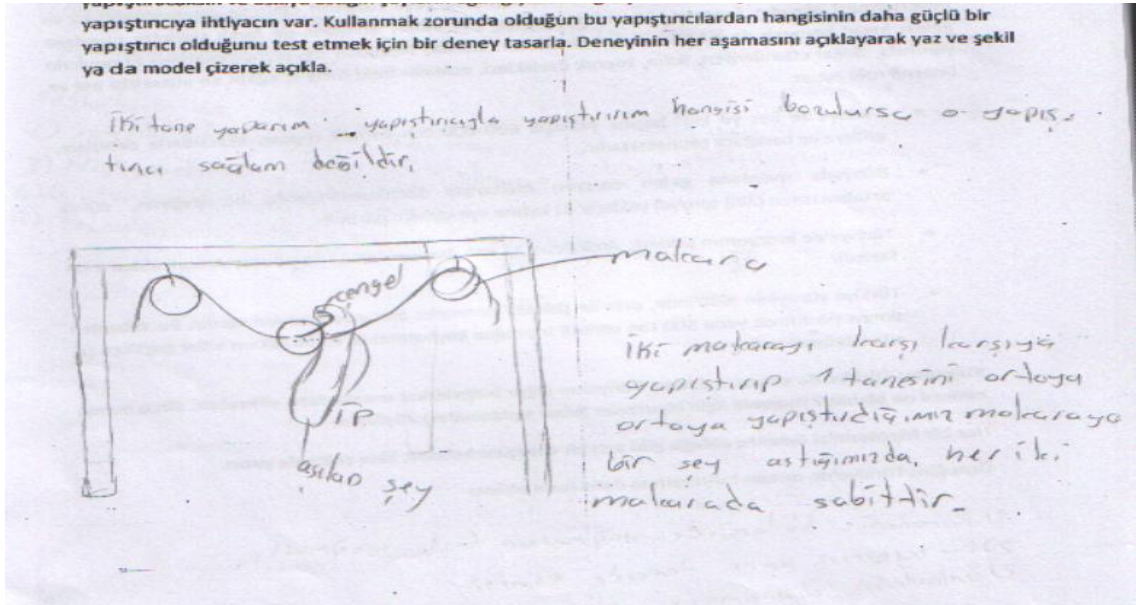 yapıştırıcıya ihtiyacın var. Kullanmak zorunda olduğun bu yapıştırıcılardan hangisinin daha güçlü bir
yapıştırıcı olduğunu test etmek için bir deney tasarla. Deneyinin her aşamasını açıklayarak yaz ve şekil
ya da model çizerek açıkla.
iki tane yaparım yapıştırıcıyla yapıştırırım hangisi bozulursa o yapış-
tırıcı sağlam değildir.
makara
çengel
ip
asılan şey
iki makarayı karşı karşıya
yapıştırıp 1 tanesini ortaya
ortaya yapıştırdığımız makaraya
bir şey astığımızda, her iki
makarada sabittir.